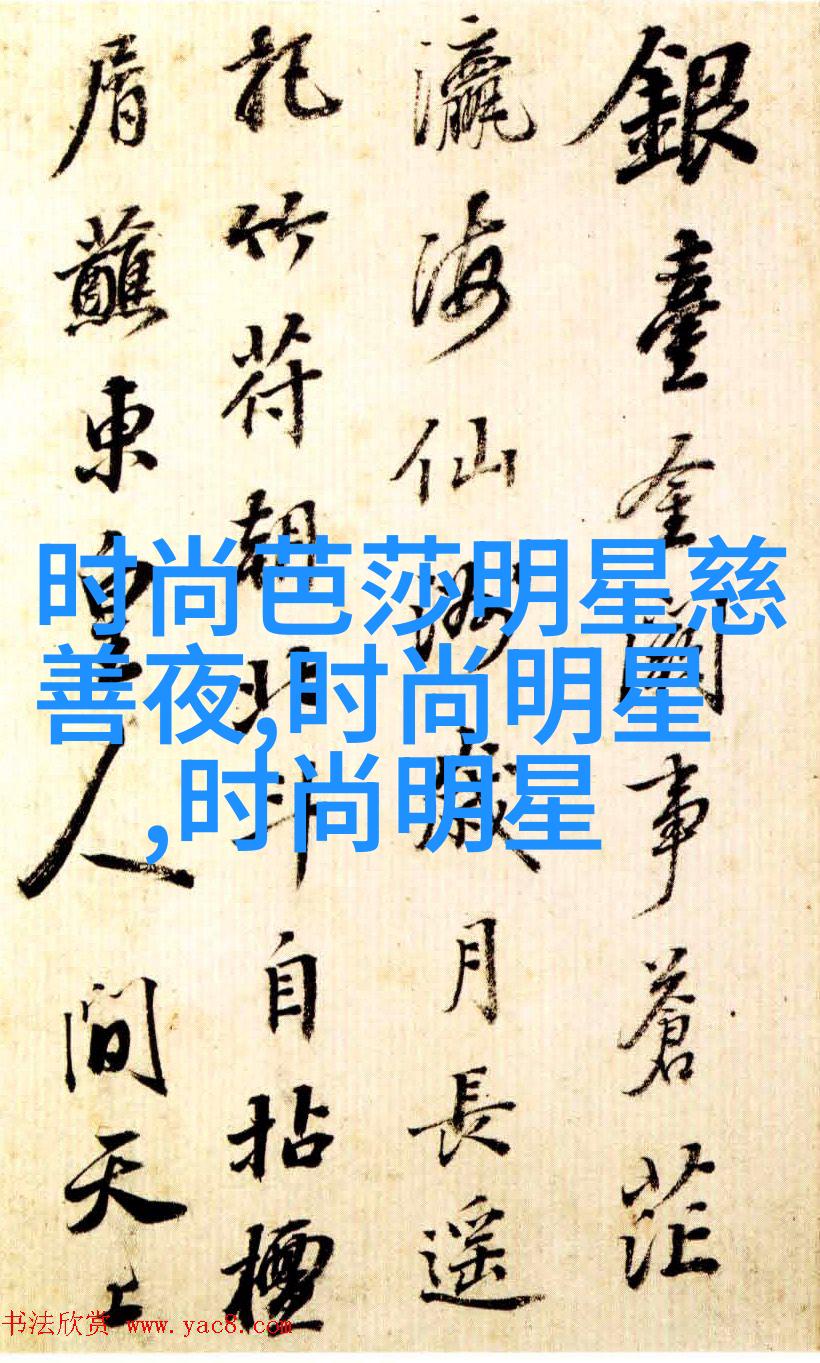 銀臺金闕事蒼茫
瀛海仙洲歲月長遥
竹符朝北斗自拈檀
屑蘸東皇人間天上
时尚芭莎明星慈
善夜,时尚明星
,时尚明星
书法欣赏 www.yac8.com